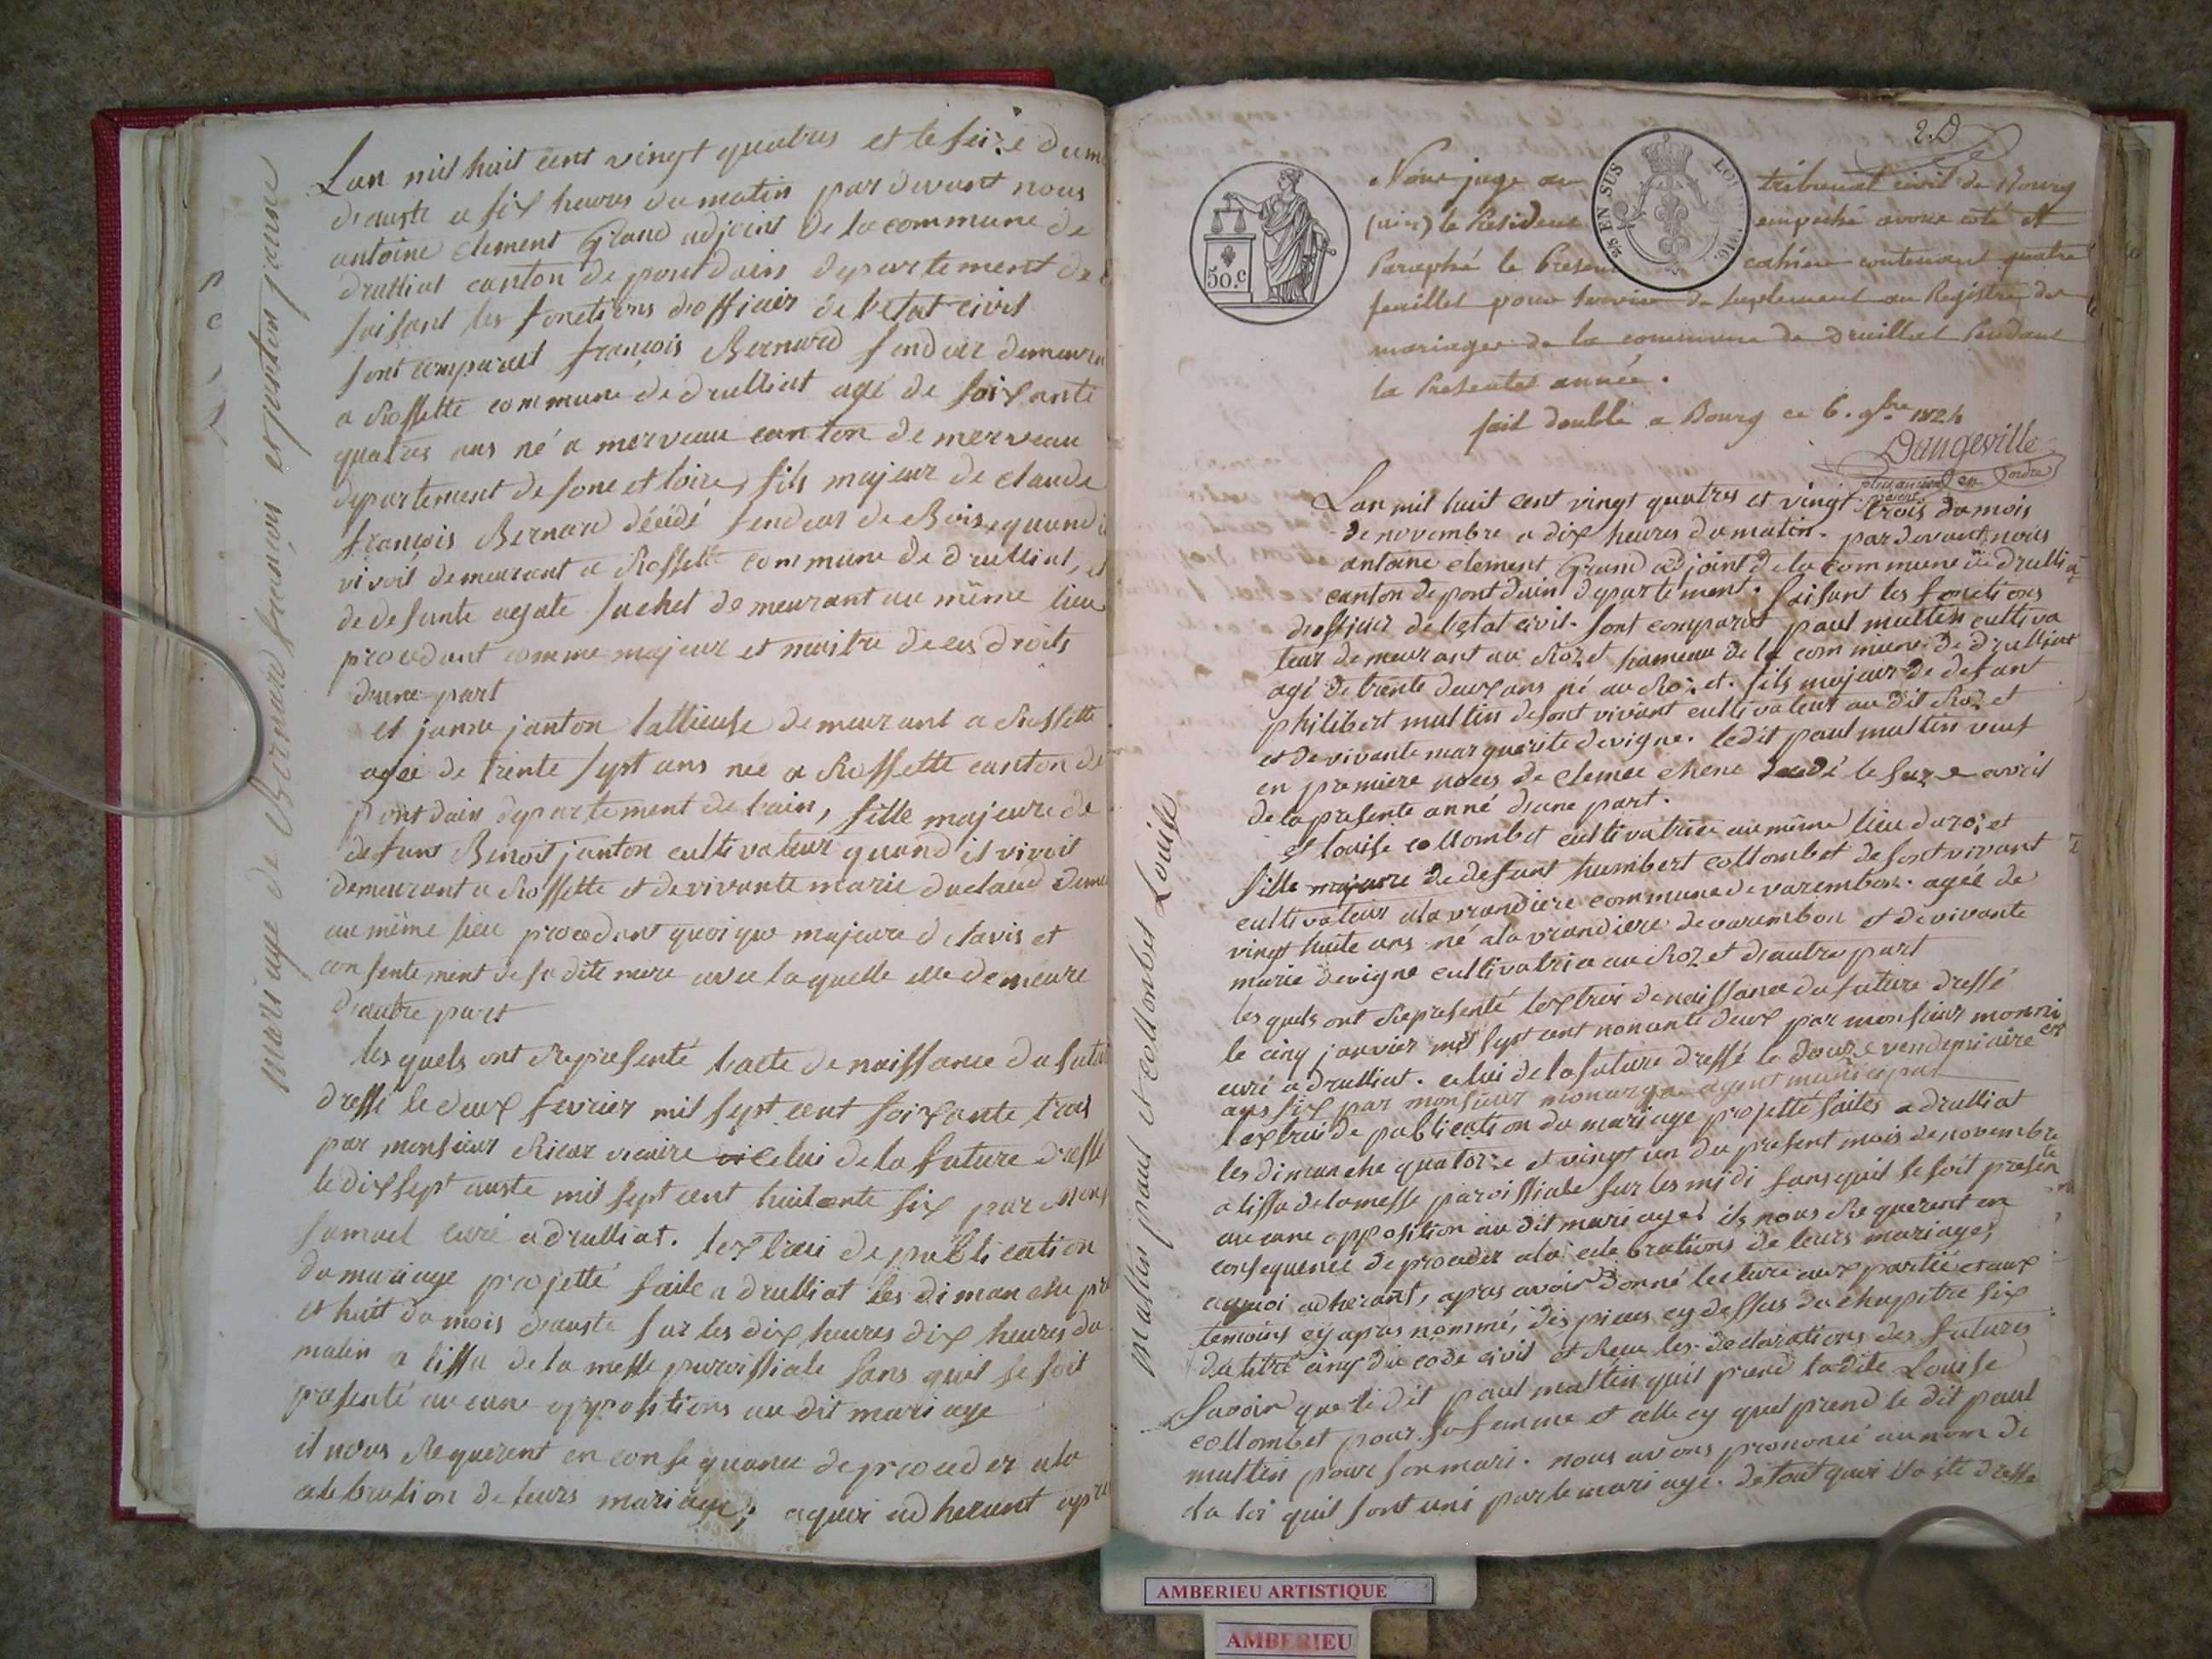 mariage de Bernard françois et janton janne
Lan mil huit cent vingt quatres et le seize du m
d'auste a six heures du matin par devant nous
antoine clement Grand adjoint de la commune de
drulliat canton de pont dain departement de l
faisant les fonctions d'officier de l'etat civil
sont comparut françois Bernard fendeur demeuran
a Rossette commune de drulliat agé de soixante
quatres ans né a merveau canton de merveau
departement de sone et loire, fils majeur de claude
françois Bernard décédé fendeur de Bois, quand i
vivoit demeurant a Rossette commune de drulliat, et
de defunte agate Juchet demeurant au même lieu
procedant comme majeur et maitre de ces droits
d'une part
et janne janton tallieuse demeurant a Rossette
agée de trente sept ans née a Rossette canton de
pont dain departement de l'ain, fille majeure de
defunt Benoit janton cultivateur quand il vivoit
demeurant a Rossette et de vivante marie duclaud deme
au même lieu procedant quoique majeure de l'avis et
consentement de sa dite mere avec laquelle elle demeure
d'autre part
les quels ont Representé l'acte de naissance du futu
dressé le deux fevrier mil sept cent soixante trois
par monsieur vicaire celui de la future dressé
le dix sept auste mil sept cent huitante six par Mons
samuel curé a drulliat. lextrai de publication
du mariage projetté faite a drulliat les dimanche pr
et huit du mois d'auste sur les dix heures dix heures du
matin a lissu de la messe paroissiale sans quil se soit
presenté aucune oppositions au dit mariage
il nous Requerent en consequance de proceder a la
celebration de leurs mariage; aquoi adherant apre
2. D
50.c
EN SUS
LOI
Nous juge au tribunal civil de Bourg
le President empeché avons coté et
Paraphé le Present cahier contenant quatre
feuillet pour servir de suplement au Registre de
mariages de la commune de Druillat Pendant
la Presente année.
fait double a Bourg ce 6. 9bre 1824
Dangeville
plus ancien en ordre
present
mallin paul et collombet Louise
Lan mil huit cent vingt quatres et vingt trois du mois
de novembre a dix heures du matin. par devant nous
antoine clement Grand adjoint de la commune de drullia
canton de pont dain departement. faisant les fonctions
d'officier de l'etat civil. sont comparut paul mullin cultiva
teur demeurant au Rozet hameau de la commune de drulliat
agé de trente deux ans né au Rozet. fils majeur de defunt
philibert mullin defont vivant cultivateur au dit Rozet
et de vivante marguerite devigne. ledit paul mullin veuf
en premiere noces de chene le avril
de la presente anné d'une part.
et louise collombet cultivatrice au même lieu du rozet
fille majeure de defunt humbert collombet defont vivant
cultivateur a la vrandiere commune de varembon. agée de
vingt huite ans né a la vrandiere de varambon et de vivante
marie devigne cultivatrice au Rozet d'autre part
les quels ont Representé lextrai de naissance du future dressé
le cinq janvier mil sept cent nonante deux par monsieur monni
er
curé a drulliat. celui de la future dressé le douze vendemiaire
ans six par monsieur agent municipal
lextrai de publication du mariage projetté faites a drulliat
les dimanche quatorze et vingt un du present mois de novembre
a lissu de la messe paroissiale sur les midi sans quil se soit presen
te
aucune opposition au dit mariage; ils nous Requerent en
consequence de proceder a la celebrations de leurs mariages,
aquoi adherant, apres avoir donné lecture aux partié et aux
temoins cy apres nommé, des pieces cy dessus du chapitre six
du titre cinq du code civil et Recu les declarations des futures
savoir que le dit paul mallin quil prend ladite Louise
collombet pour sa femme et celle cy quel prend le dit paul
mullin pour son mari. nous avons prononcé au nom de
la loi quil sont uni par le mariage. de tout quoi il a été dressé
AMBERIEU ARTISTIQUE
AMBERIEU